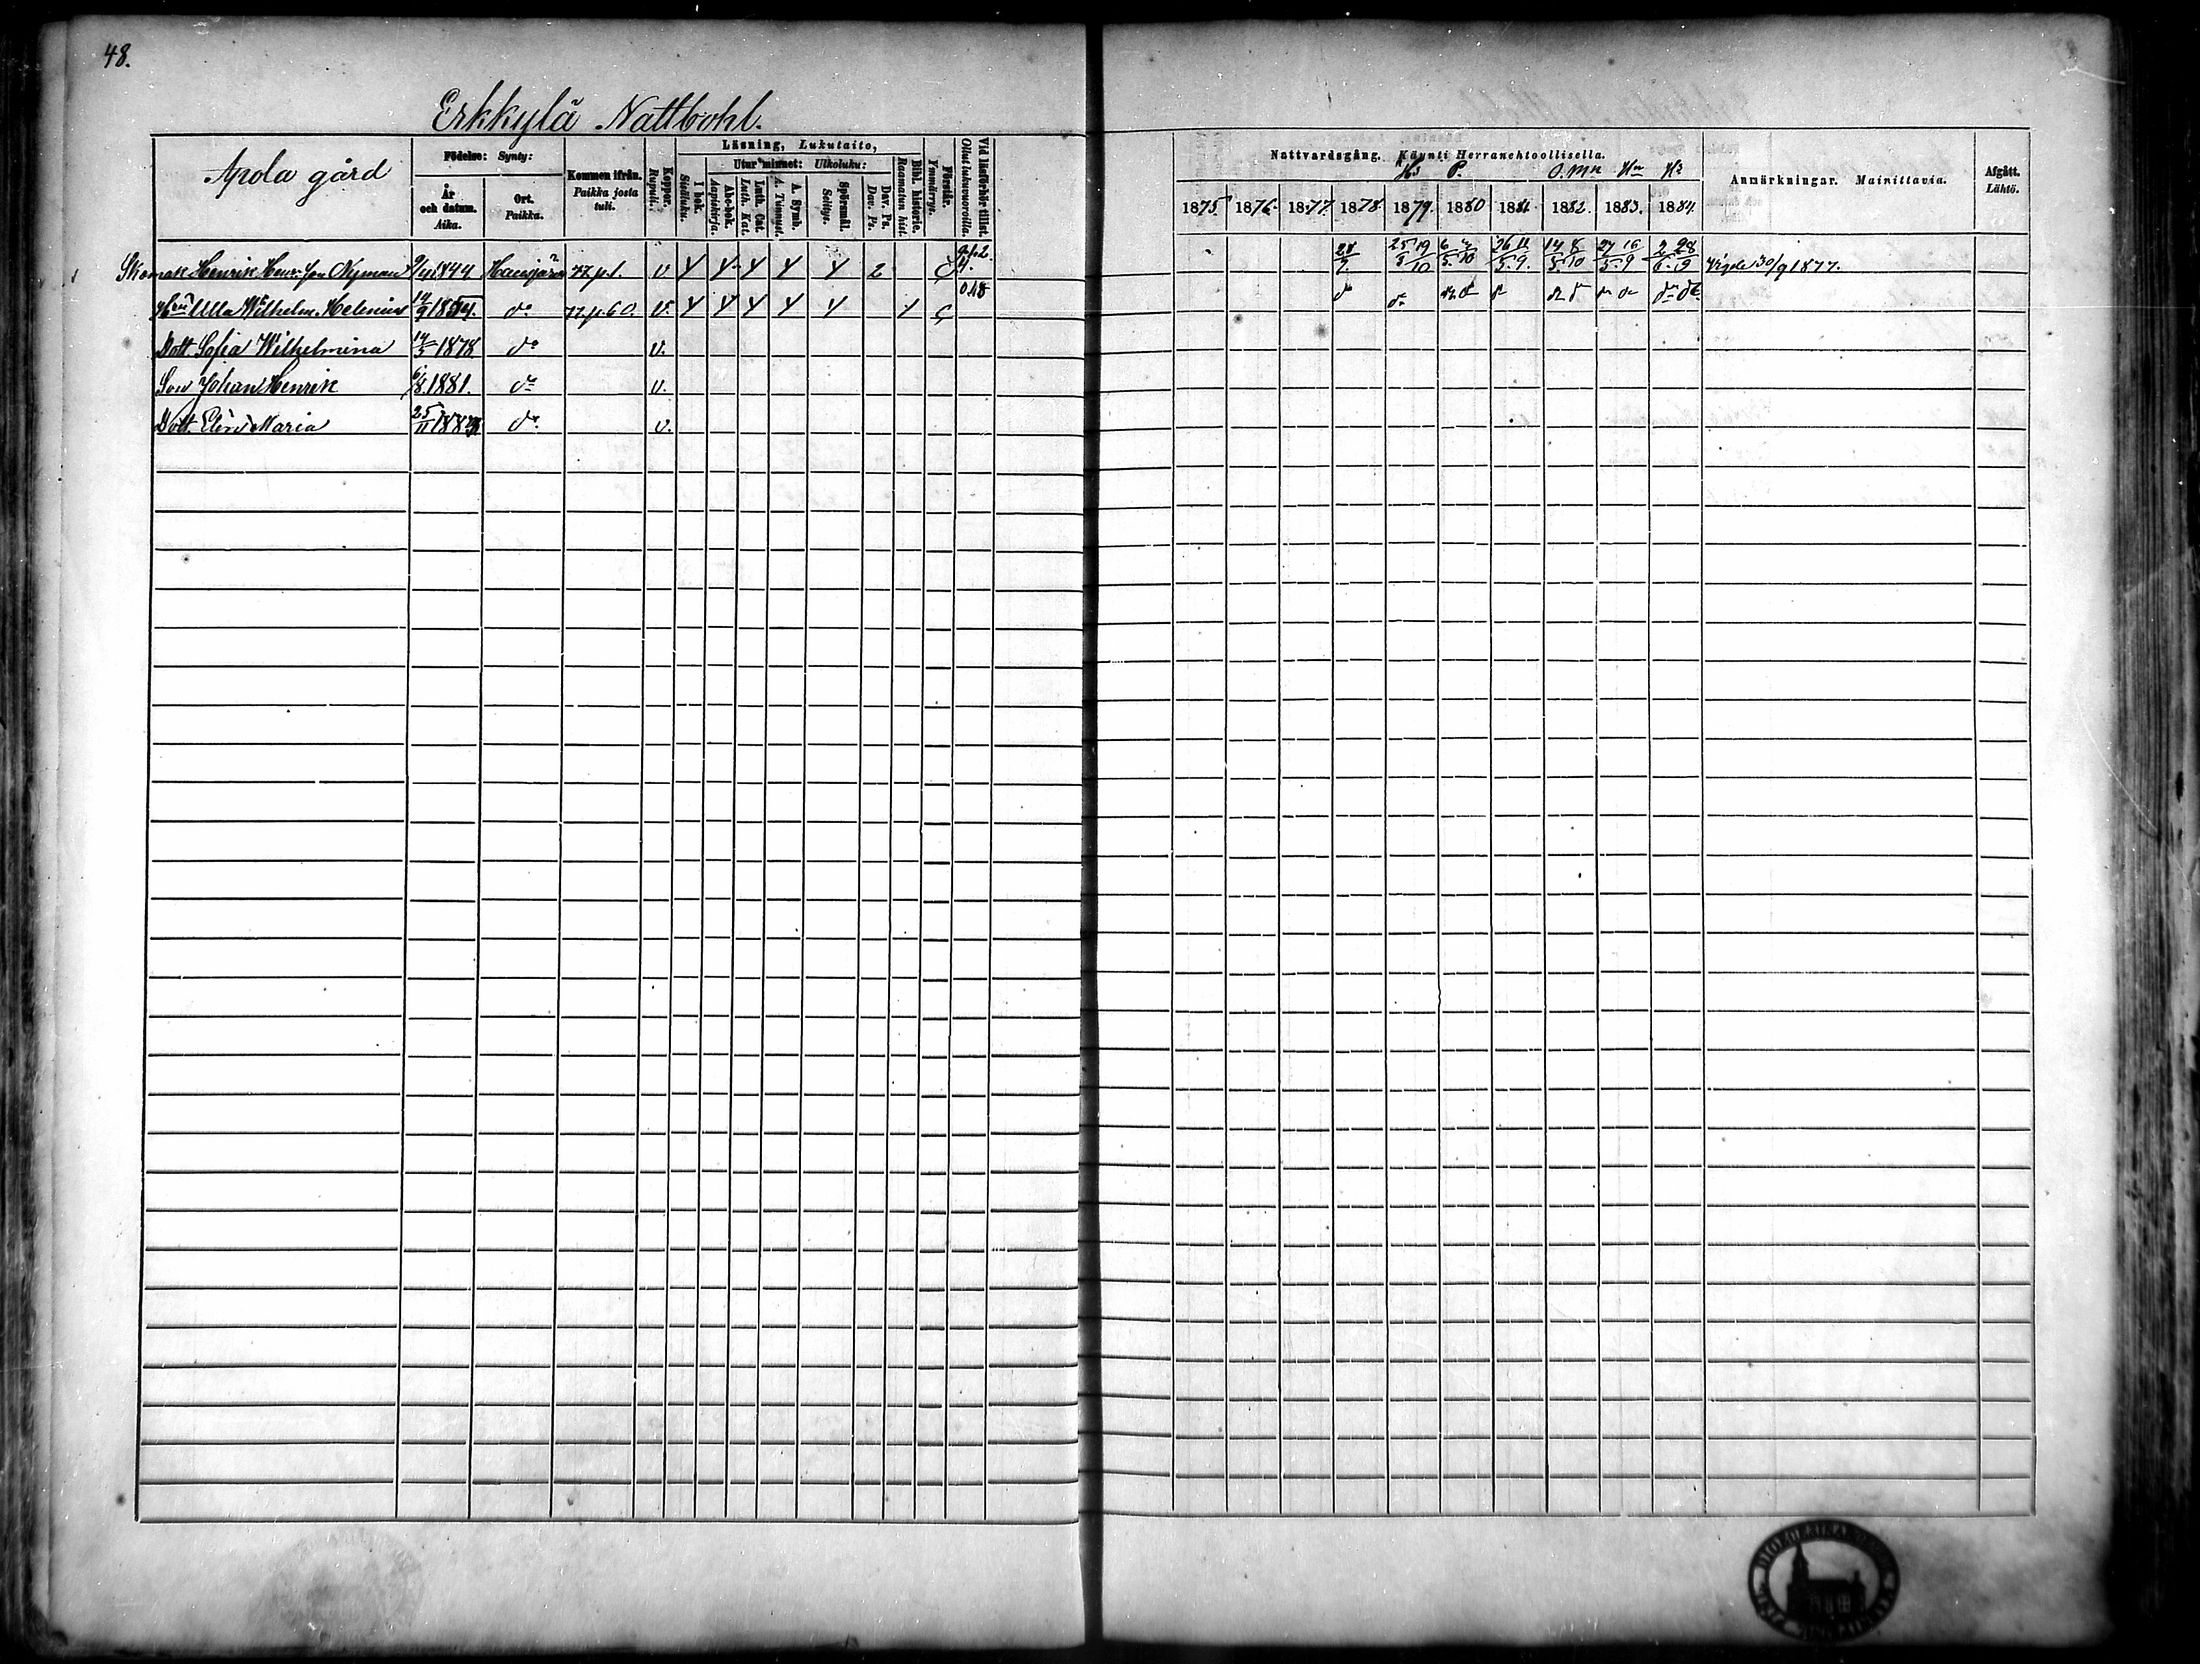 48.
Erkkylä Nattbohl.
Apola gård
Födelse: Synty:
År och datum. Aika.
Ort. Paikka.
Kommen ifrån. Paikka josta tuli.
Koppor. Rupuli.
Läsning, Lukutaito,
I bok. Sisäluku.
Utur minnet: Ulkoluku:
Abc-bok. Aapiskirja.
Luth. Cat. Luth. Kat.
A. Symb. A. Tunnust.
Spörsmål. Selitys.
Dav. Ps. Dav. Ps.
Bibl. historie. Raamatun hist.
Förstår. Ymmärrys.
Vid läsförhör tillst. Ollut lukuvuorolla.
Nattvardsgång. Käynti Herranehtoollisella.
1875. 1876. 1877. 1878. 1879. 1880 1881. 1882. 1883. 1884.
Anmärkningar. Mainittavia.
Afgått. Lähtö.
Skomak Henrik Henr. son Nyman 9/11 1844 Hausjärvi 77.p.1. v 2 28/7. 25/5 19/10 26/5. 11/9. 14/5. 8/10 27/5. 16/9 2/6. 28/9 Vigde 30/9 1877.
Hru Ulla Wilhelm. Melenius 14/9 1854. do 77.p.60. v.
Dott. Sofia Wilhelmina 14/5 1878 do v.
Son Johan Henrik 6/8 1881. do v.
Dott. Maria 25/11 do v.